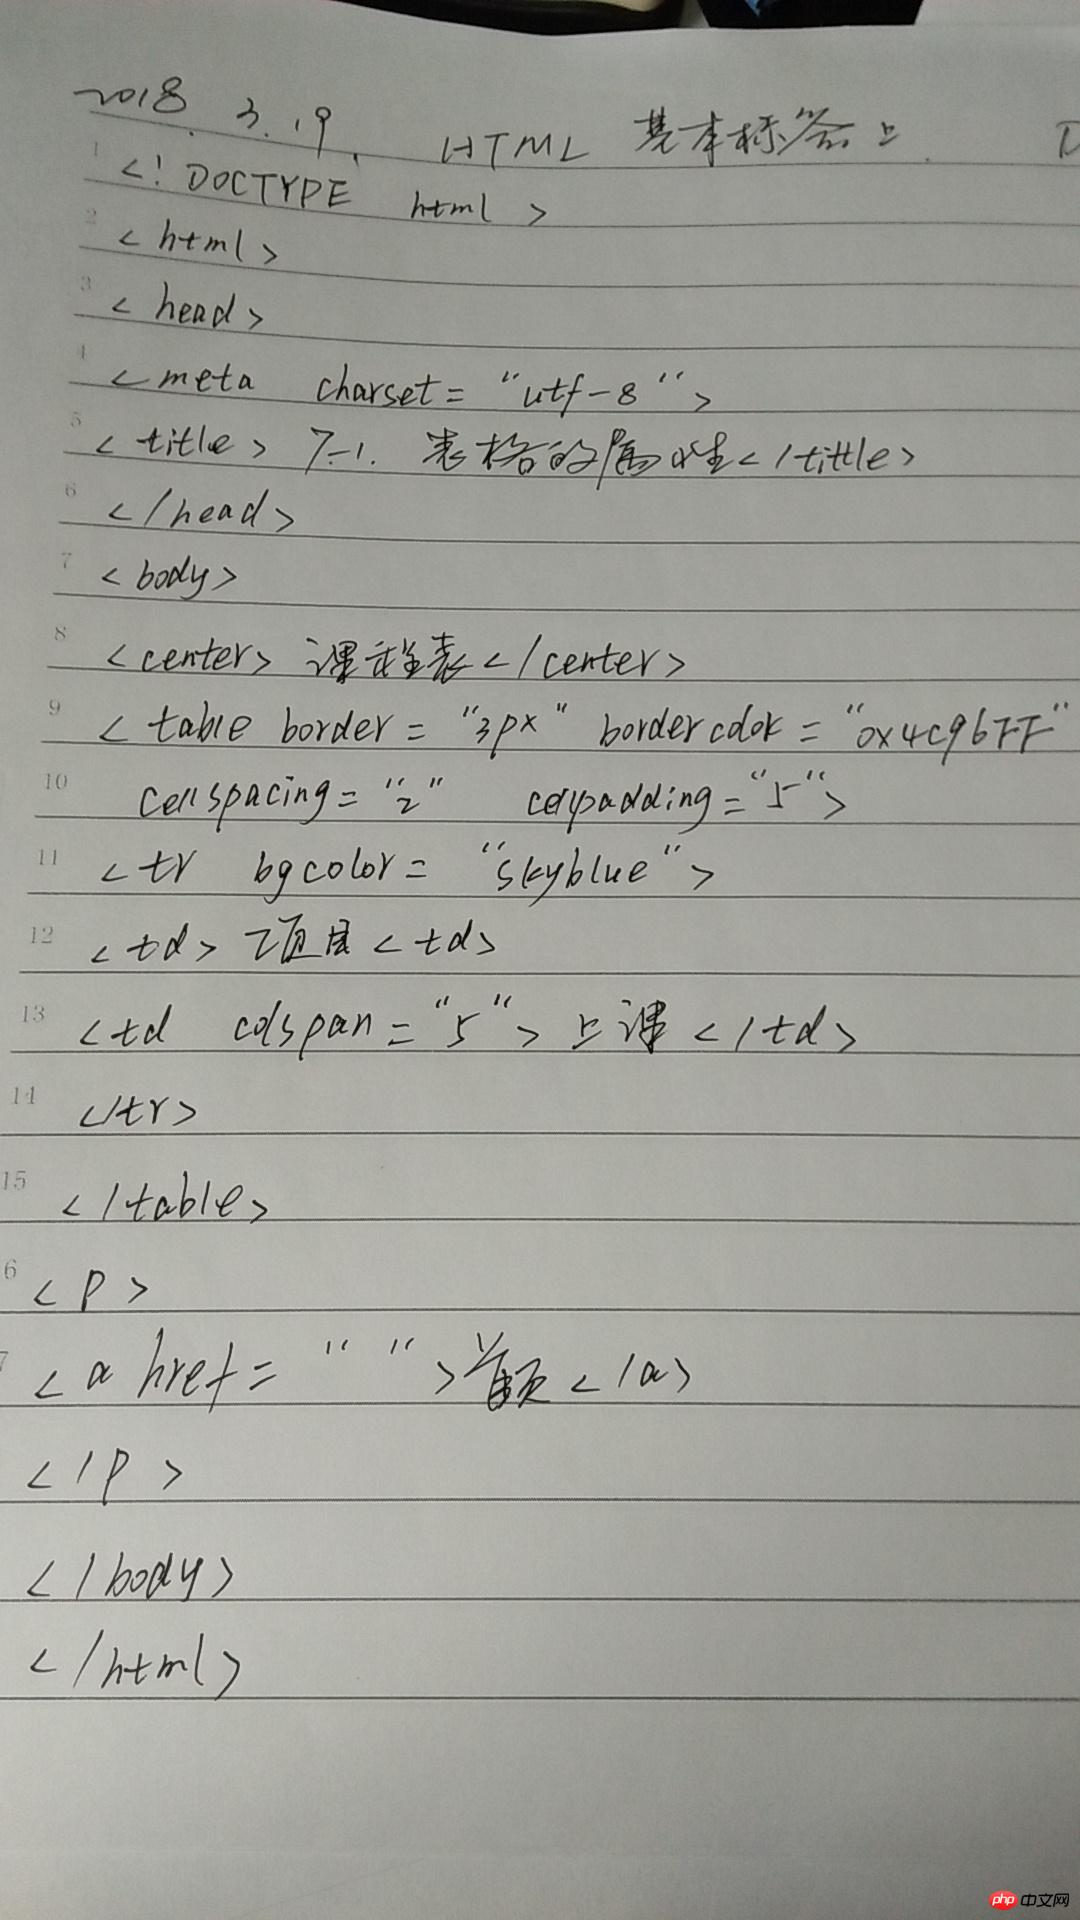 2018.3.19. HTML 基本标签上. D
1 <! DOCTYPE html >
2 < html >
3 < head >
4 < meta charset = "utf-8" >
5 < title > 7-1. 表格的属性 < /tittle >
6 < /head >
7 < body >
8 < center > 课程表 < /center >
9 < table border = "3px" bordercolor = "0x4c96FF"
10 cellspacing = "2" cellpadding = "5" >
11 < tr bgcolor = "skyblue" >
12 < td > 项目 < td >
13 < td colspan = "5" > 上课 < /td >
14 </tr >
15 < /table >
6 < p >
7 < a href = " " > 首页 < /a >
< /p >
< /body >
< /html >
php 中文网